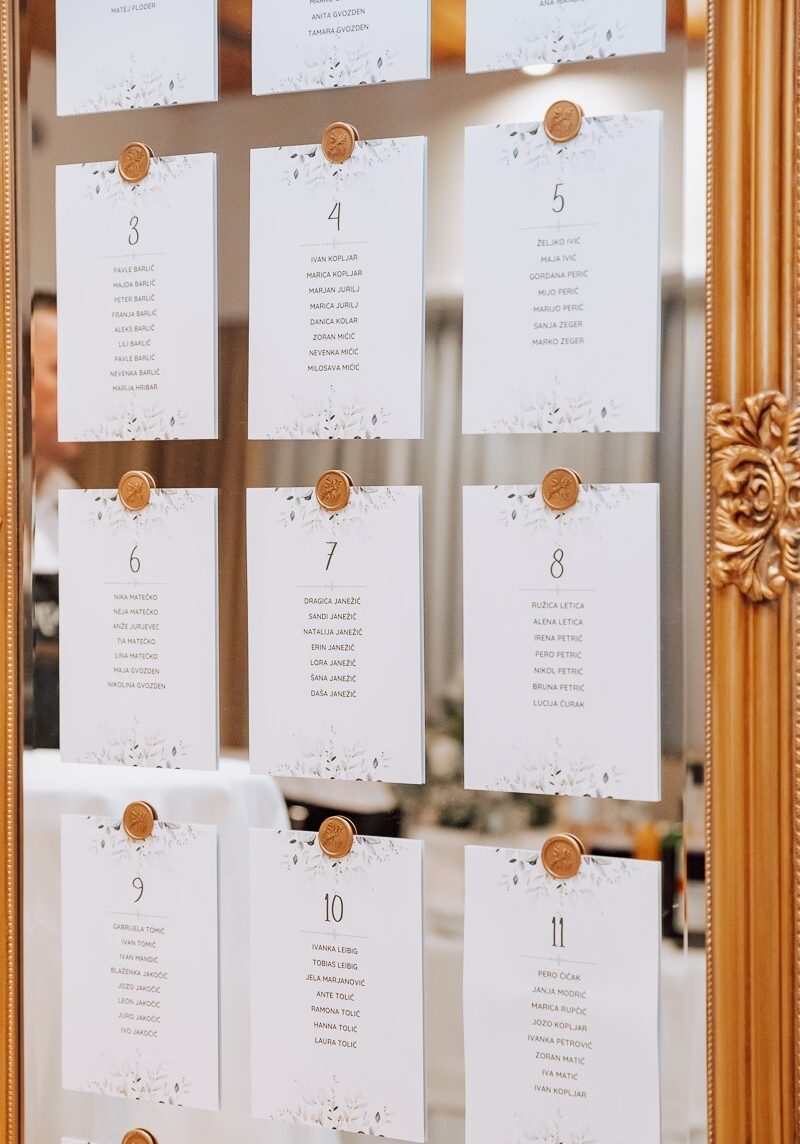 MATEJ PLODER
ANITA GVOZDEN
TAMARA GVOZDEN
3
PAVLE BARLIČ
MAJDA BARLIČ
PETER BARLIČ
FRANJA BARLIČ
ALEKS BARLIČ
LILI BARLIČ
PAVLE BARLIČ
NEVENKA BARLIČ
MARIJA HRIBAR
4
IVAN KOPLJAR
MARICA KOPLJAR
MARJAN JURILJ
MARICA JURILJ
DANICA KOLAR
ZORAN MIĆIĆ
NEVENKA MIĆIĆ
MILOSAVA MIĆIĆ
5
ŽELJKO IVIĆ
MAJA IVIĆ
GORDANA PERIĆ
MIJO PERIĆ
MARIJO PERIĆ
SANJA ZEGER
MARKO ZEGER
6
NIKA MATEČKO
NEJA MATEČKO
ANŽE JURJEVEC
TIA MATEČKO
LINA MATEČKO
MAJA GVOZDEN
NIKOLINA GVOZDEN
7
DRAGICA JANEŽIČ
SANDI JANEŽIČ
NATALIJA JANEŽIČ
ERIN JANEŽIČ
LORA JANEŽIČ
ŠANA JANEŽIČ
DAŠA JANEŽIČ
8
RUŽICA LETICA
ALENA LETICA
IRENA PETRIĆ
PERO PETRIĆ
NIKOL PETRIĆ
BRUNA PETRIĆ
LUCIJA ČURAK
9
GABRIJELA TOMIĆ
IVAN TOMIĆ
IVAN MANDIĆ
BLAŽENKA JAKOČIĆ
JOZO JAKOČIĆ
LEON JAKOČIĆ
JURO JAKOČIĆ
IVO JAKOČIĆ
10
IVANKA LEIBIG
TOBIAS LEIBIG
JELA MARJANOVIĆ
ANTE TOLIĆ
RAMONA TOLIĆ
HANNA TOLIĆ
LAURA TOLIĆ
11
PERO ČIČAK
JANJA MODRIĆ
MARICA RUPČIĆ
JOZO KOPLJAR
IVANKA PETROVIĆ
ZORAN MATIĆ
IVA MATIĆ
IVAN KOPLJAR